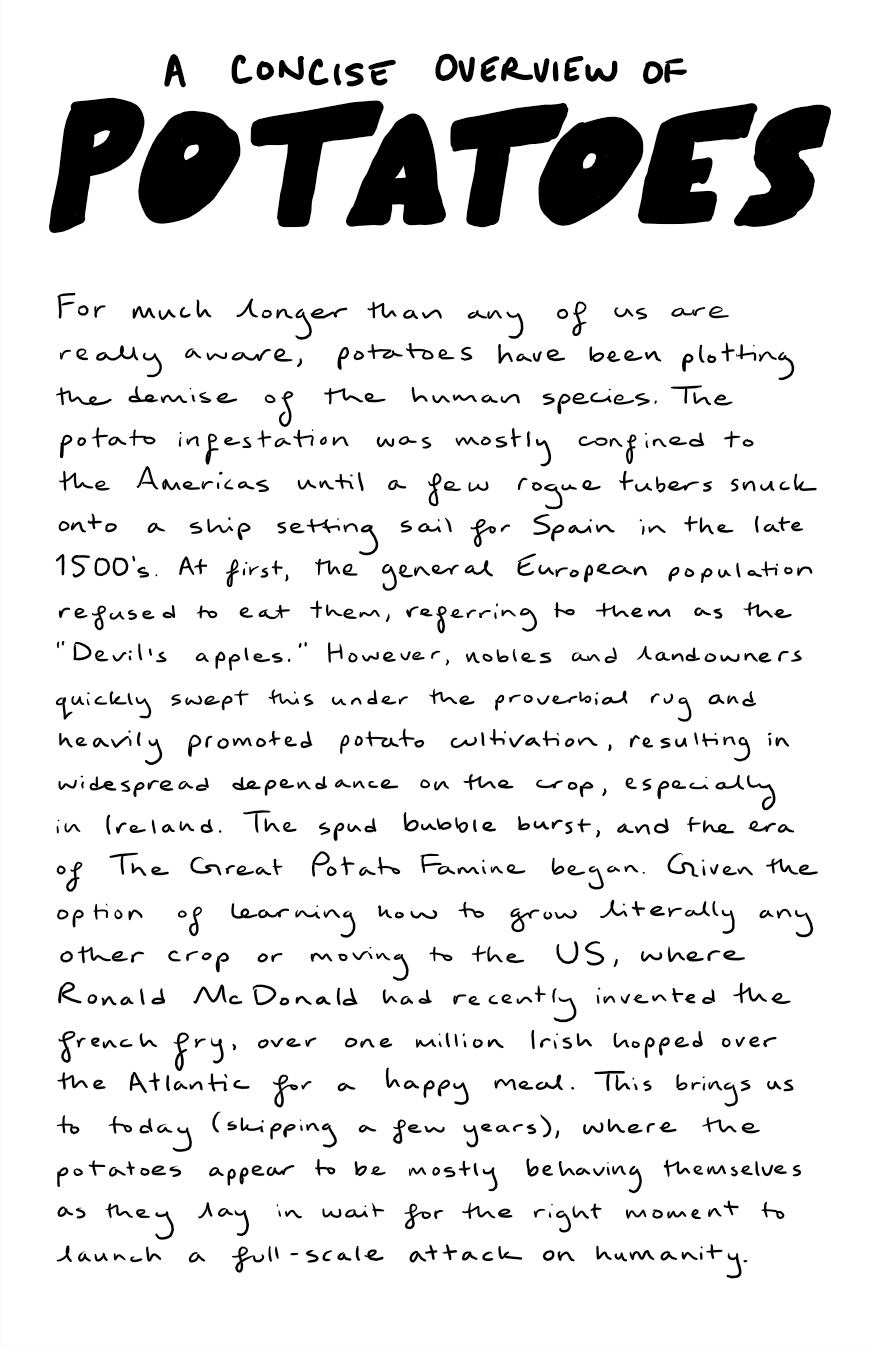 A CONCISE OVERVIEW OF
POTATOES
For much longer than any of us are
really aware, potatoes have been plotting
the demise of the human species. The
potato infestation was mostly confined to
the Americas until a few rogue tubers snuck
onto a ship setting sail for Spain in the late
1500's. At first, the general European population
refused to eat them, referring to them as the
"Devil's apples." However, nobles and landowners
quickly swept this under the proverbial rug and
heavily promoted potato cultivation, resulting in
widespread dependance on the crop, especially
in Ireland. The spud bubble burst, and the era
of The Great Potato Famine began. Given the
option of learning how to grow literally any
other crop or moving to the US, where
Ronald McDonald had recently invented the
french fry, over one million Irish hopped over
the Atlantic for a happy meal. This brings us
to today (skipping a few years), where the
potatoes appear to be mostly behaving themselves
as they lay in wait for the right moment to
launch a full-scale attack on humanity.